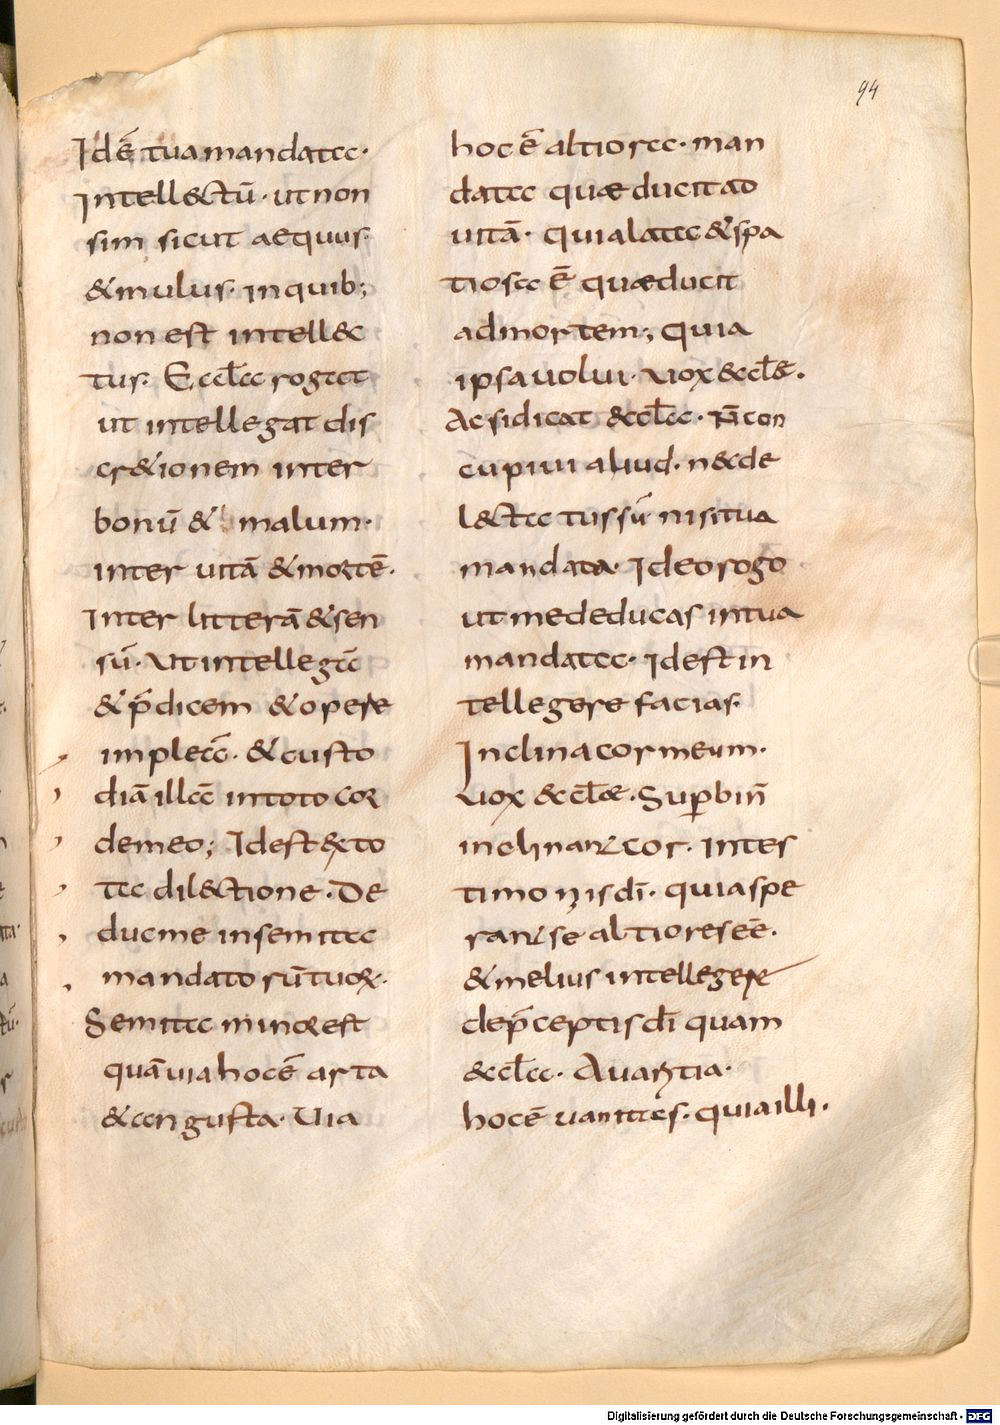 94
Idē tua mandata·
Intellectū· ut non
sim sicut aequus·
& mulus· in quib;
non est intellec
tus· Eccla rogat
ut intellegat dis
cr&ionem inter
bonū & malum·
inter uitā & mortē·
Inter litterā & sen
sū· Ut intellegā
& p̄dicem & opere
impleā· & custo
diā illā in toto cor
de meo; Id est ex to
ta dil&ctione· De
duc me in semita
mandatorū tuoꝝ·
Semita minor est
quā uia hoc ē arta
& angusta· Uia
hoc ē altiora· man
data quae ducit ad
uitā· quia lata & spa
tiosa ē quae ducit
ad mortem; quia
ipsa uolui· uox eccłe·
Ac si dicat eccła· n̄ con
cupiui aliud· nec de
lectatus sū nisi tua
mandata· Ideo rogo
ut me deducas in tua
mandata· Id est in
tellegere facias·
Inclina cor meum·
uox eccłae· Superbi n̄
inclinant cor· in tes
timoniis dī· quia spe
rant se altiores eē·
& melius intellegere
de p̄ceptis dī quam
eccła· Auaritia·
hoc ē uanitas· quia illi·
Digitalisierung gefördert durch die Deutsche Forschungsgemeinschaft - DFG